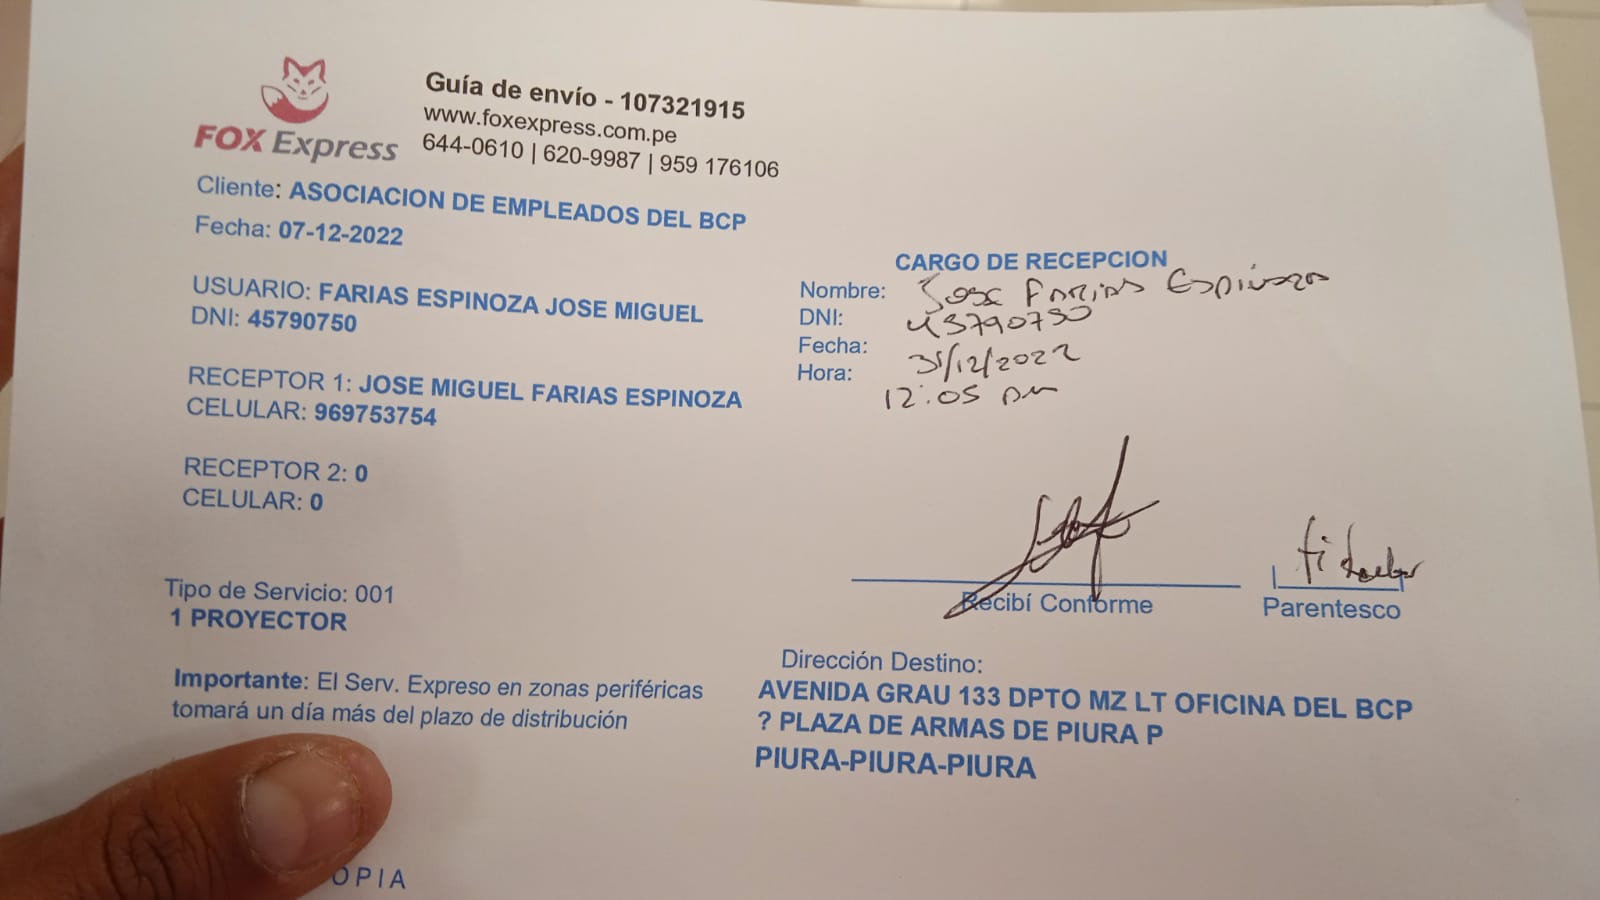 FOX Express
Guía de envío - 107321915
www.foxexpress.com.pe
644-0610 | 620-9987 | 959 176106
Cliente: ASOCIACION DE EMPLEADOS DEL BCP
Fecha: 07-12-2022
USUARIO: FARIAS ESPINOZA JOSE MIGUEL
DNI: 45790750
RECEPTOR 1: JOSE MIGUEL FARIAS ESPINOZA
CELULAR: 969753754
RECEPTOR 2: 0
CELULAR: 0
Tipo de Servicio: 001
1 PROYECTOR
Importante: El Serv. Expreso en zonas periféricas
tomará un día más del plazo de distribución
CARGO DE RECEPCION
Nombre: Jose Farias Espinoza
DNI: 45790750
Fecha: 31/12/2022
Hora: 12:05 pm
Recibí Conforme
titular
Parentesco
Dirección Destino:
AVENIDA GRAU 133 DPTO MZ LT OFICINA DEL BCP
? PLAZA DE ARMAS DE PIURA P
PIURA-PIURA-PIURA
OPIA